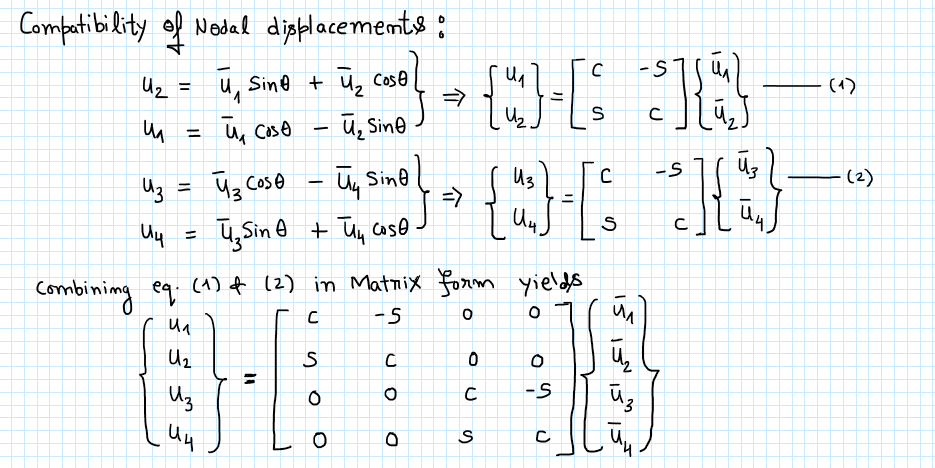 Compatibility of Nodal displacements:
u₂ = ū₁ sinθ + ū₂ cosθ
u₁ = ū₁ cosθ − ū₂ sinθ } ⇒ {u₁ u₂} = [c -s s c] {ū₁ ū₂} —— (1)
u₃ = ū₃ cosθ − ū₄ sinθ
u₄ = ū₃ sinθ + ū₄ cosθ } ⇒ {u₃ u₄} = [c -s s c] {ū₃ ū₄} —— (2)
combining eq. (1) & (2) in Matrix form yields
{u₁ [c -s 0 0] {ū₁
u₂ = s c 0 0 ū₂
u₃ 0 0 c -s ū₃
u₄} [0 0 s c] ū₄}